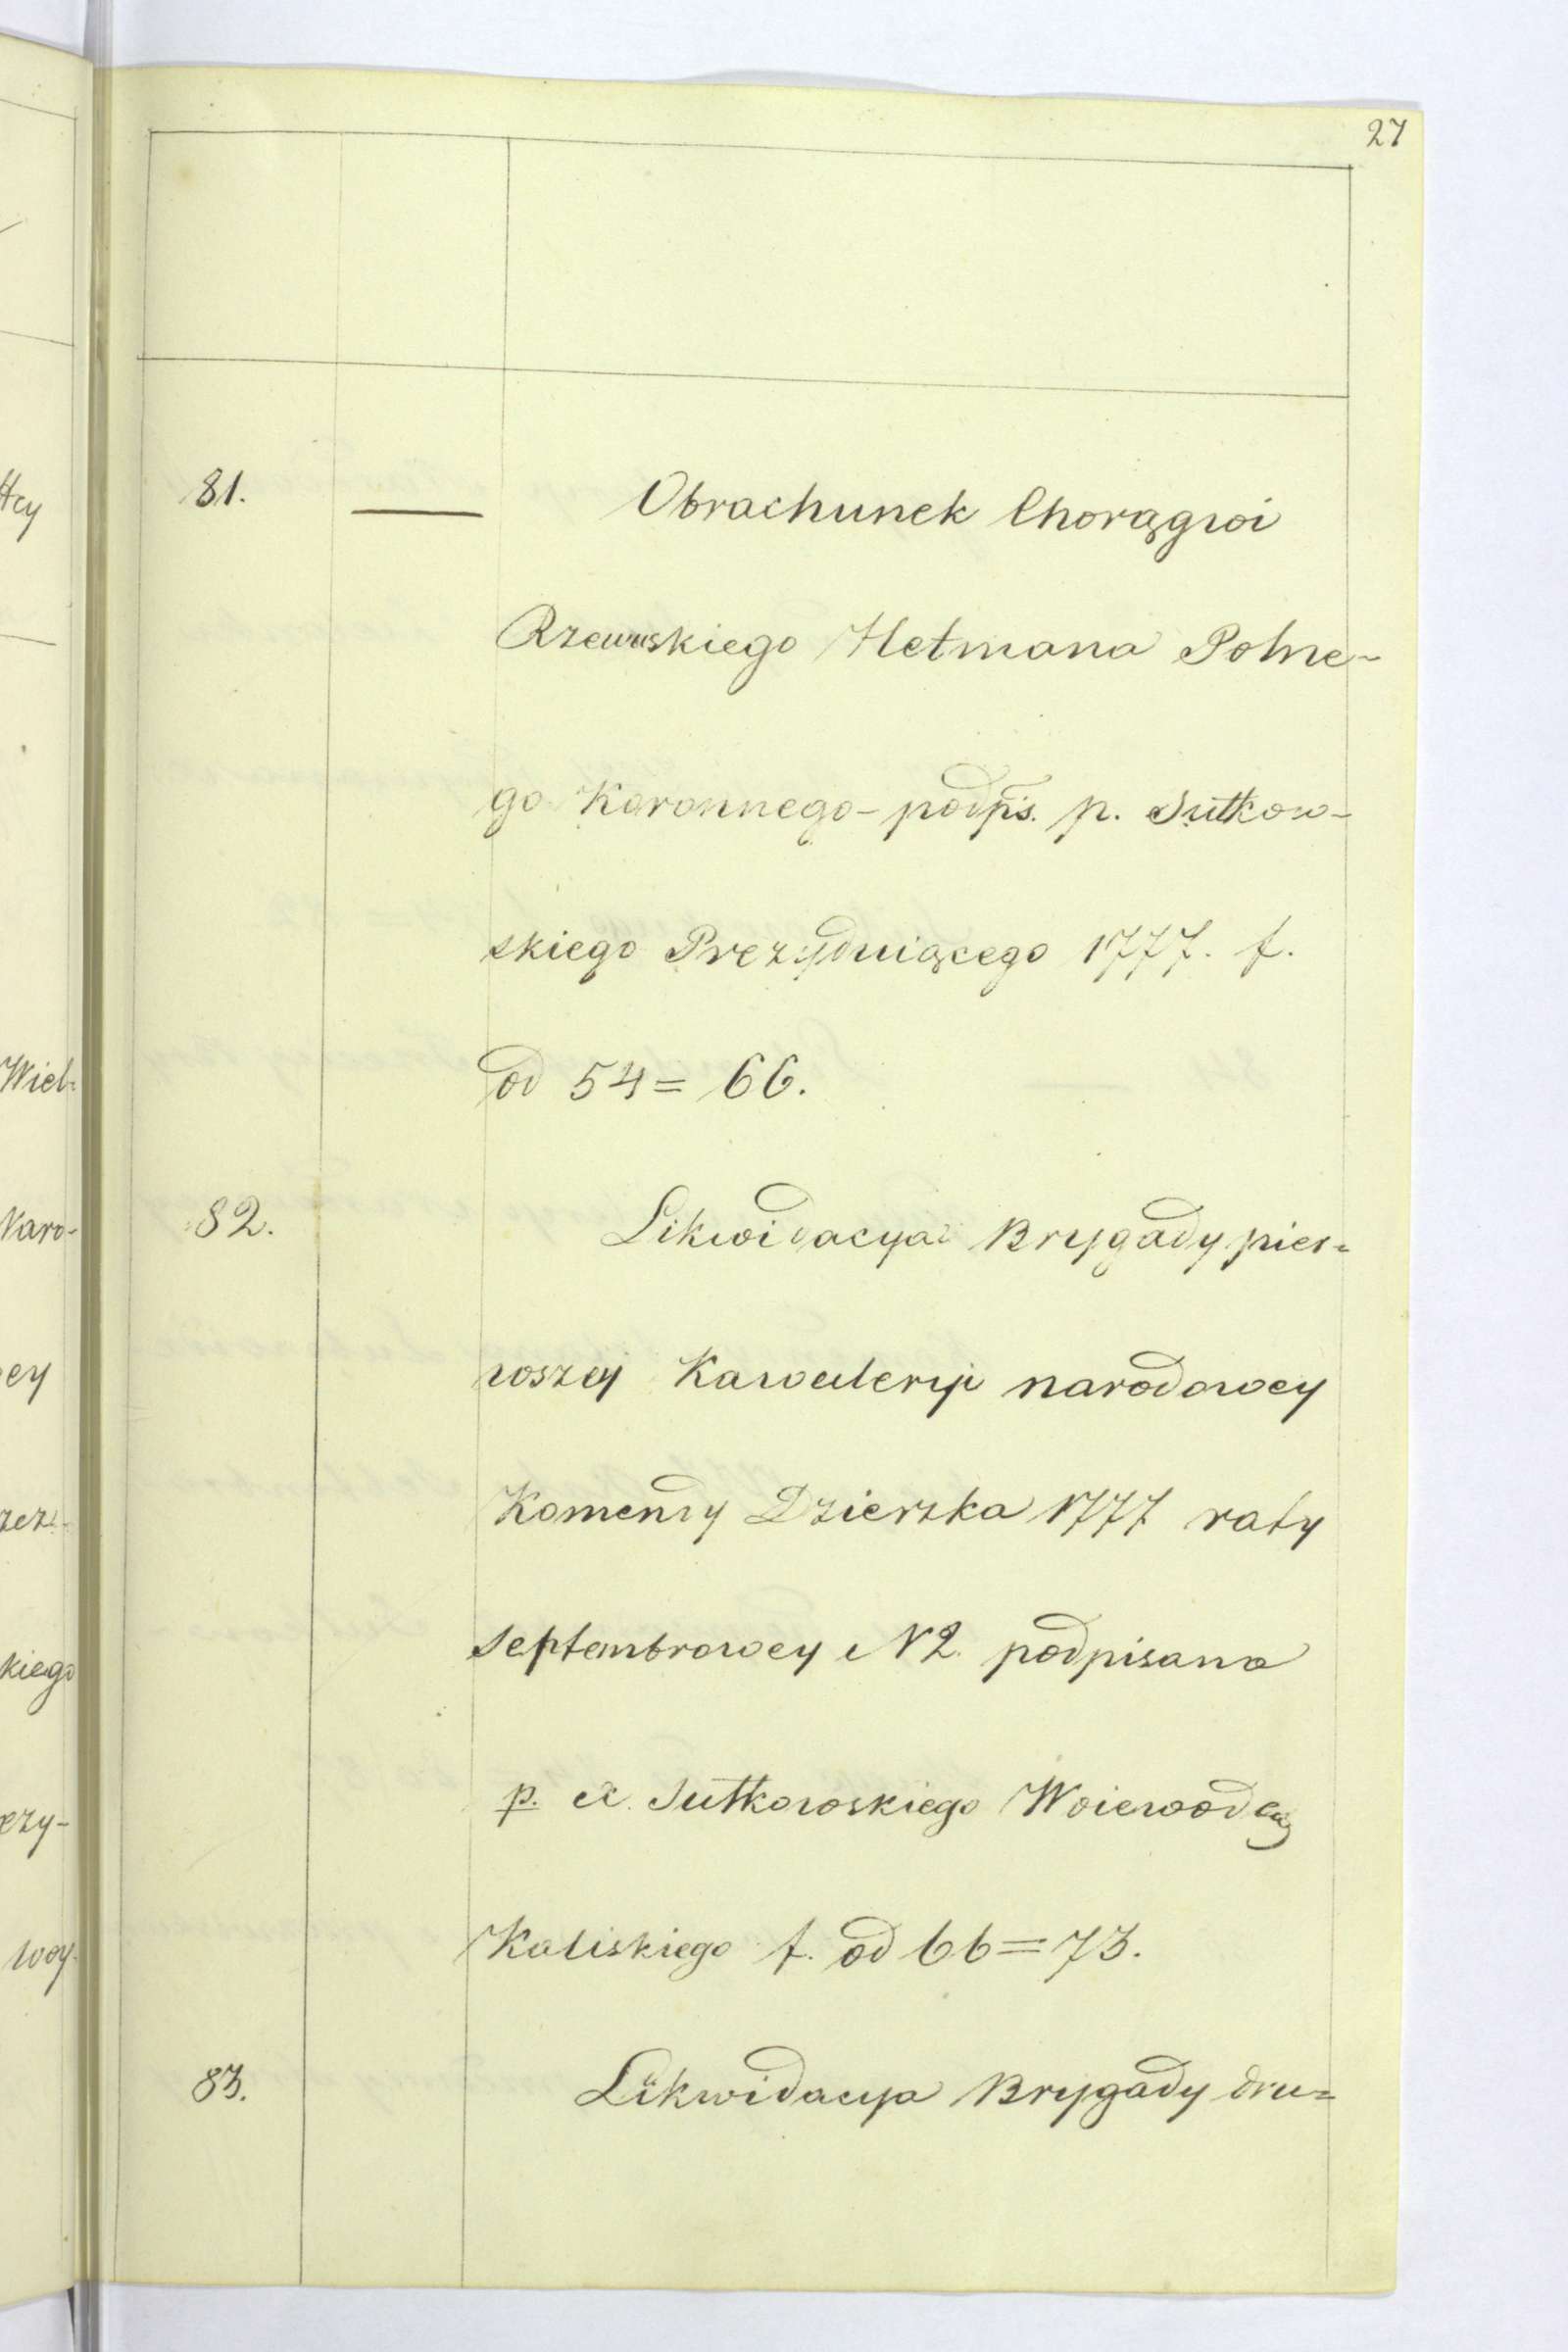 27
81. — Obrachunek Chorągwi
Rzewuskiego Hetmana Polne-
go Koronnego - podpis. p. Sułkow-
skiego Prezyduiącego 1777. f.
od 54 = 66.
82. Likwidacya Brygady pier=
wszey Kawaleryi narodowey
Komendy Dzierzka 1777 raty
septembrowey N 2 podpisana
p. A. Sułkowskiego Woiewodę
Kaliskiego f. od 66 = 73.
83. Likwidacya Brygady dru=